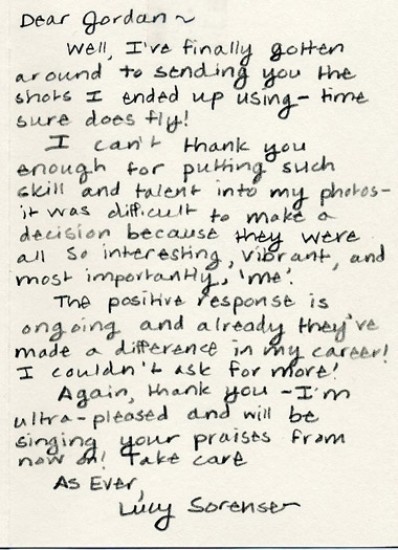 Dear Jordan ~
Well, I've finally gotten
around to sending you the
shots I ended up using - time
sure does fly!
I can't thank you
enough for putting such
skill and talent into my photos -
it was difficult to make a
decision because they were
all so interesting, vibrant, and
most importantly, 'me'.
The positive response is
ongoing and already they've
made a difference in my career!
I couldn't ask for more!
Again, thank you - I'm
ultra-pleased and will be
singing your praises from
now on! Take care
As Ever,
Lucy Sorensen